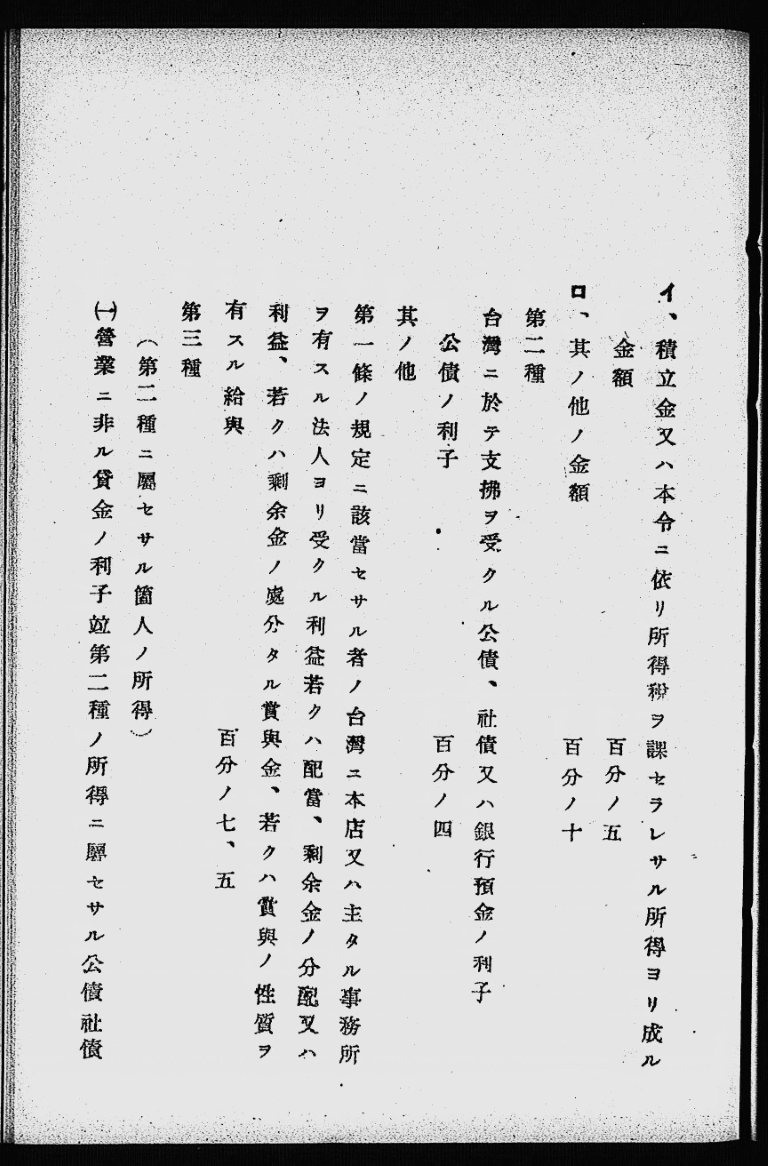 イ、積立金又ハ本令ニ依リ所得稅ヲ課セラレサル所得ヨリ成ル
金額　百分ノ五
ロ、其ノ他ノ金額　百分ノ十
第二種
台灣ニ於テ支拂ヲ受クル公債、社債又ハ銀行預金ノ利子
公債ノ利子　百分ノ四
其ノ他
第一條ノ規定ニ該當セサル者ノ台灣ニ本店又ハ主タル事務所
ヲ有スル法人ヨリ受クル利益若クハ配當、剩余金ノ分配又ハ
利益、若クハ剩余金ノ處分タル賞與金、若クハ賞與ノ性質ヲ
有スル給與　百分ノ七、五
第三種
（第二種ニ屬セサル箇人ノ所得）
㈠營業ニ非ル貸金ノ利子竝第二種ノ所得ニ屬セサル公債社債